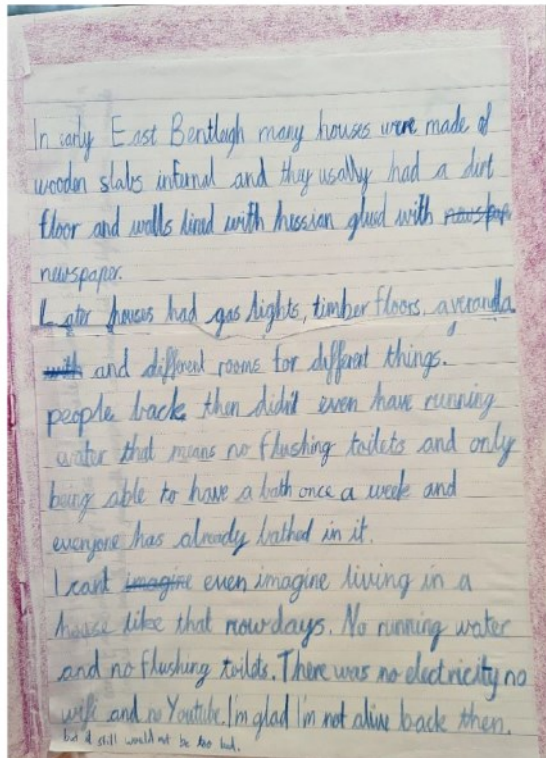 In early East Bentleigh many houses were made of
wooden slabs infurnal and they usally had a dirt
floor and walls lined with hussian glued with newspap
newspaper.
Later houses had gas lights, timber floors, averanda
with and different rooms for different things.
people back then didn't even have running
water that means no flushing toilets and only
being able to have a bath once a week and
everyone has already bathed in it.
I cant imagine even imagine living in a
house like that nowdays. No running water
and no flushing toilets. There was no electricity no
wifi and no Youtube. I'm glad I'm not alive back then.
but it still would not be too bad.